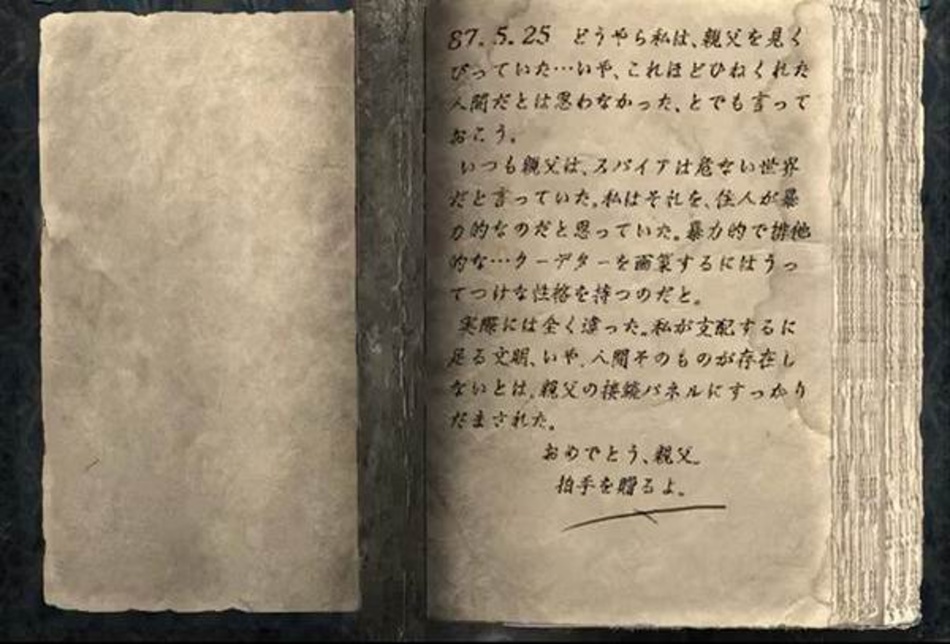 87.5.25 どうやら私は、親父を見く
びっていた…いや、これほどひねくれた
人間だとは思わなかった、とでも言って
おこう。
いつも親父は、スパイアは危ない世界
だと言っていた。私はそれを、住人が暴
力的なのだと思っていた。暴力的で排他
的な…クーデターを画策するにはうっ
てつけな性格を持つのだと。
実際には全く違った。私が支配するに
足る文明、いや、人間そのものが存在し
ないとは。親父の接続パネルにすっかり
だまされた。
おめでとう、親父。
拍手を贈るよ。